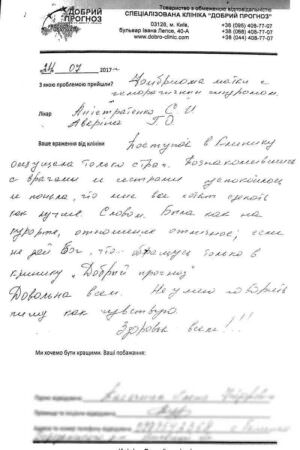 ДОБРИЙ
ПРОГНОЗ
Товариство з обмеженою відповідальністю
СПЕЦІАЛІЗОВАНА КЛІНІКА "ДОБРИЙ ПРОГНОЗ"
03126, м. Київ,
бульвар Івана Лепсе, 40-А
www.dobro-clinic.com
+38 (095) 408-77-07
+38 (068) 408-77-07
+38 (044) 408-77-07
24 07 2017
З якою проблемою прийшли?
матки с
геморагічним синдромом
Лікар
С. И
Аверіна Г. О.
Ваше враження від клініки
Поступая в Клинику
ощущала только страх. Познакомившись
с врачами и сестрами успокоилась
и поняла, что мне все хотят сделать
как лучше. Словом. Была как на
курорте, отношение отличное; если
не дай Бог, что обращусь только в
клинику "Добрый прогноз"
Довольна всем. Не умею говорить
пишу как чувствую.
Здоровья всем!!!
Ми хочемо бути кращими. Ваші побажання: